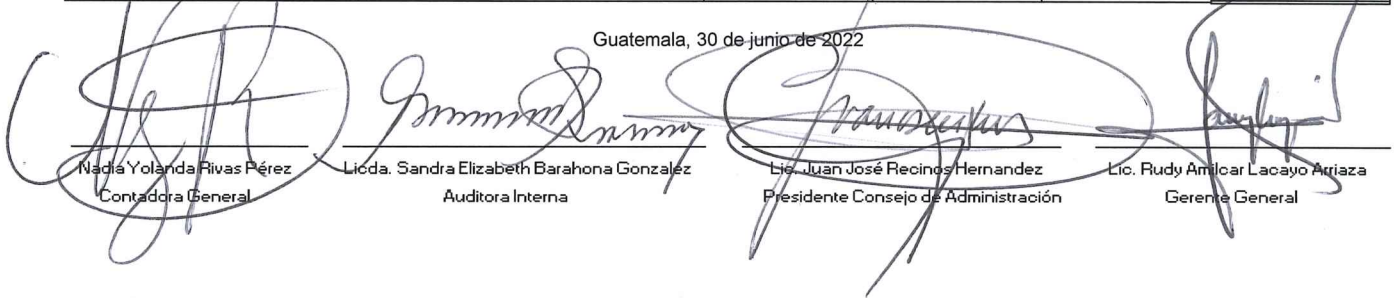 Guatemala, 30 de junio de 2022
Nadia Yolanda Rivas Pérez
Contadora General
Licda. Sandra Elizabeth Barahona Gonzalez
Auditora Interna
Lic. Juan José Recinos Hernandez
Presidente Consejo de Administración
Lic. Rudy Amilcar Lacayo Arriaza
Gerente General